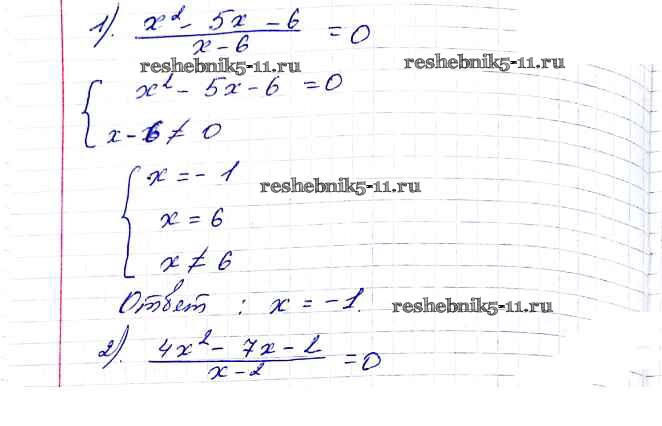 1). (x² - 5x - 6)/(x - 6) = 0
reshebnik5-11.ru reshebnik5-11.ru
{ x² - 5x - 6 = 0
x - 6 ≠ 0
{ x = - 1
reshebnik5-11.ru
x = 6
x ≠ 6
Ответ : x = -1.
reshebnik5-11.ru
2). (4x² - 7x - 2)/(x - 2) = 0